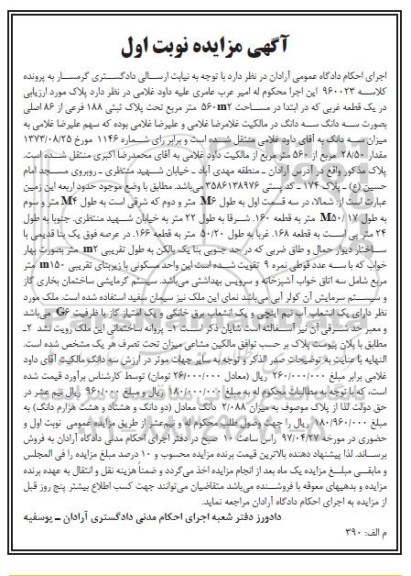 آگهی مزایده نوبت اول
اجرای احکام دادگاه عمومی آرادان در نظر دارد با توجه به نیابت ارسالی دادگستری گرمسار به پرونده
کلاسه ۹۶۰۰۲۳ این اجرا محکوم له امیر عرب عامری علیه داود غلامی در نظر دارد پلاک مورد ارزیابی
در یک قطعه غربی که در ابتدا در مساحت ۵۶۰m۲ متر مربع تحت پلاک ثبتی ۱۸۸ فرعی از ۸۶ اصلی
بصورت سه دانگ سه دانگ در مالکیت غلامرضا غلامی و علیرضا غلامی بوده که سهم علیرضا غلامی به
میزان سه دانگ به آقای داود غلامی منتقل شده است و برابر رای شماره ۱۱۴۶ مورخ ۱۳۷۳/۰۸/۲۵
مقدار ۲۸/۵۰ مربع از ۵۶۰ متر مربع از مالکیت داود غلامی به آقای محمدرضا اکبری منتقل شده است.
پلاک مذکور واقع در آدرس آرادان ـ منطقه مهدی آباد ـ خیابان شهید منتظری ـ روبروی مسجد امام
حسین (ع) ـ پلاک ۱۷۴ ـ کد پستی ۳۵۸۶۱۳۸۹۷۶ می‌باشد. مطابق با وضع موجود حدود اربعه این زمین
عبارت است از: شمالا، در سه قسمت اول به طول M۶ متر و دوم که شرقی است به طول M۴ متر و سوم
به طول M۵۰/۱۷ متر به قطعه ۱۶۰. شرقا به طول ۲۲ متر به خیابان شهید منتظری. جنوبا به طول
۲۴ متر پی است به قطعه ۱۶۸. غربا به طول ۵۰/۲۰ متر به قطعه ۱۶۶. در عرصه فوق یک بنا قدیمی با
ساختار دیوار حمال و طاق ضربی که در حد جنوبی بنا یک بالکن به طول تقریبی m۲ متر بصورت بهار
خواب که با سه عدد قوطی نمره ۹ تقویت شده است این واحد مسکونی با زیربنای تقریبی m۱۵۰ متر
مربع شامل سه اتاق خواب آشپزخانه و سرویس بهداشتی می‌باشد. سیستم گرمایشی ساختمان بخاری گاز
و سیستم سرمایش آن کولر آبی می‌باشد نمای این ملک نیز سیمان سفید استفاده شده است. ملک مورد
نظر دارای یک انشعاب آب نیم اینچی و یک انشعاب برق خانگی و یک امتیاز گاز با ظرفیت G۶ می‌باشد
و معبر حد شرقی آن نیز آسفالته است شایان ذکر است ۱ـ پروانه ساختمانی این ملک رویت نشد ۲ـ
مطابق با پلان پیوست پلاک بر حسب توافق مالکین مشاعی میزان تحت تصرف هر یک مشخص شده است.
النهایه با عنایت به توضیحات صدر الذکر و توجه به سایر جهات موثر در ارزش سه دانگ مالکیت آقای داود
غلامی برابر مبلغ ۲۶۰/۰۰۰/۰۰۰ ریال (معادل ۲۶/۰۰۰/۰۰۰ تومان) توسط کارشناس برآورد قیمت شده
است، که با توجه به مطالبات محکوم له به مبلغ ۱۸۰/۰۰۰/۰۰۰ ریال و مبلغ ۹۶۰/۰۰۰ ریال نیم عشر در
حق دولت لذا از پلاک موصوف به میزان ۲/۰۸۸ دانگ معادل (دو دانگ و هشتاد و هشت هزارم دانگ) به
مبلغ ۱۸۰/۹۶۰/۰۰۰ ریال را جهت وصول طلب محکوم له و نیم‌عشر از طریق مزایده عمومی نوبت اول و
حضوری در مورخه ۹۷/۰۴/۲۷ راس ساعت ۱۰ صبح در دفتر اجرای احکام مدنی دادگاه آرادان به فروش
برساند. لذا پیشنهاد دهنده بالاترین قیمت برنده مزایده محسوب و ۱۰ درصد مبلغ مزایده را فی المجلس
و مابقی مبلغ مزایده یک ماه بعد از انجام مزایده اخذ می‌گردد و ضمناً هزینه نقل و انتقال به عهده برنده
مزایده و بدهیهای معوقه با فروشنده می‌باشد متقاضیان می‌توانند جهت کسب اطلاع بیشتر پنج روز قبل
از مزایده به اجرای احکام دادگاه آرادان مراجعه نماید.
دادورز دفتر شعبه اجرای احکام مدنی دادگستری آرادان ـ یوسفیه
م الف: ۳۹۰